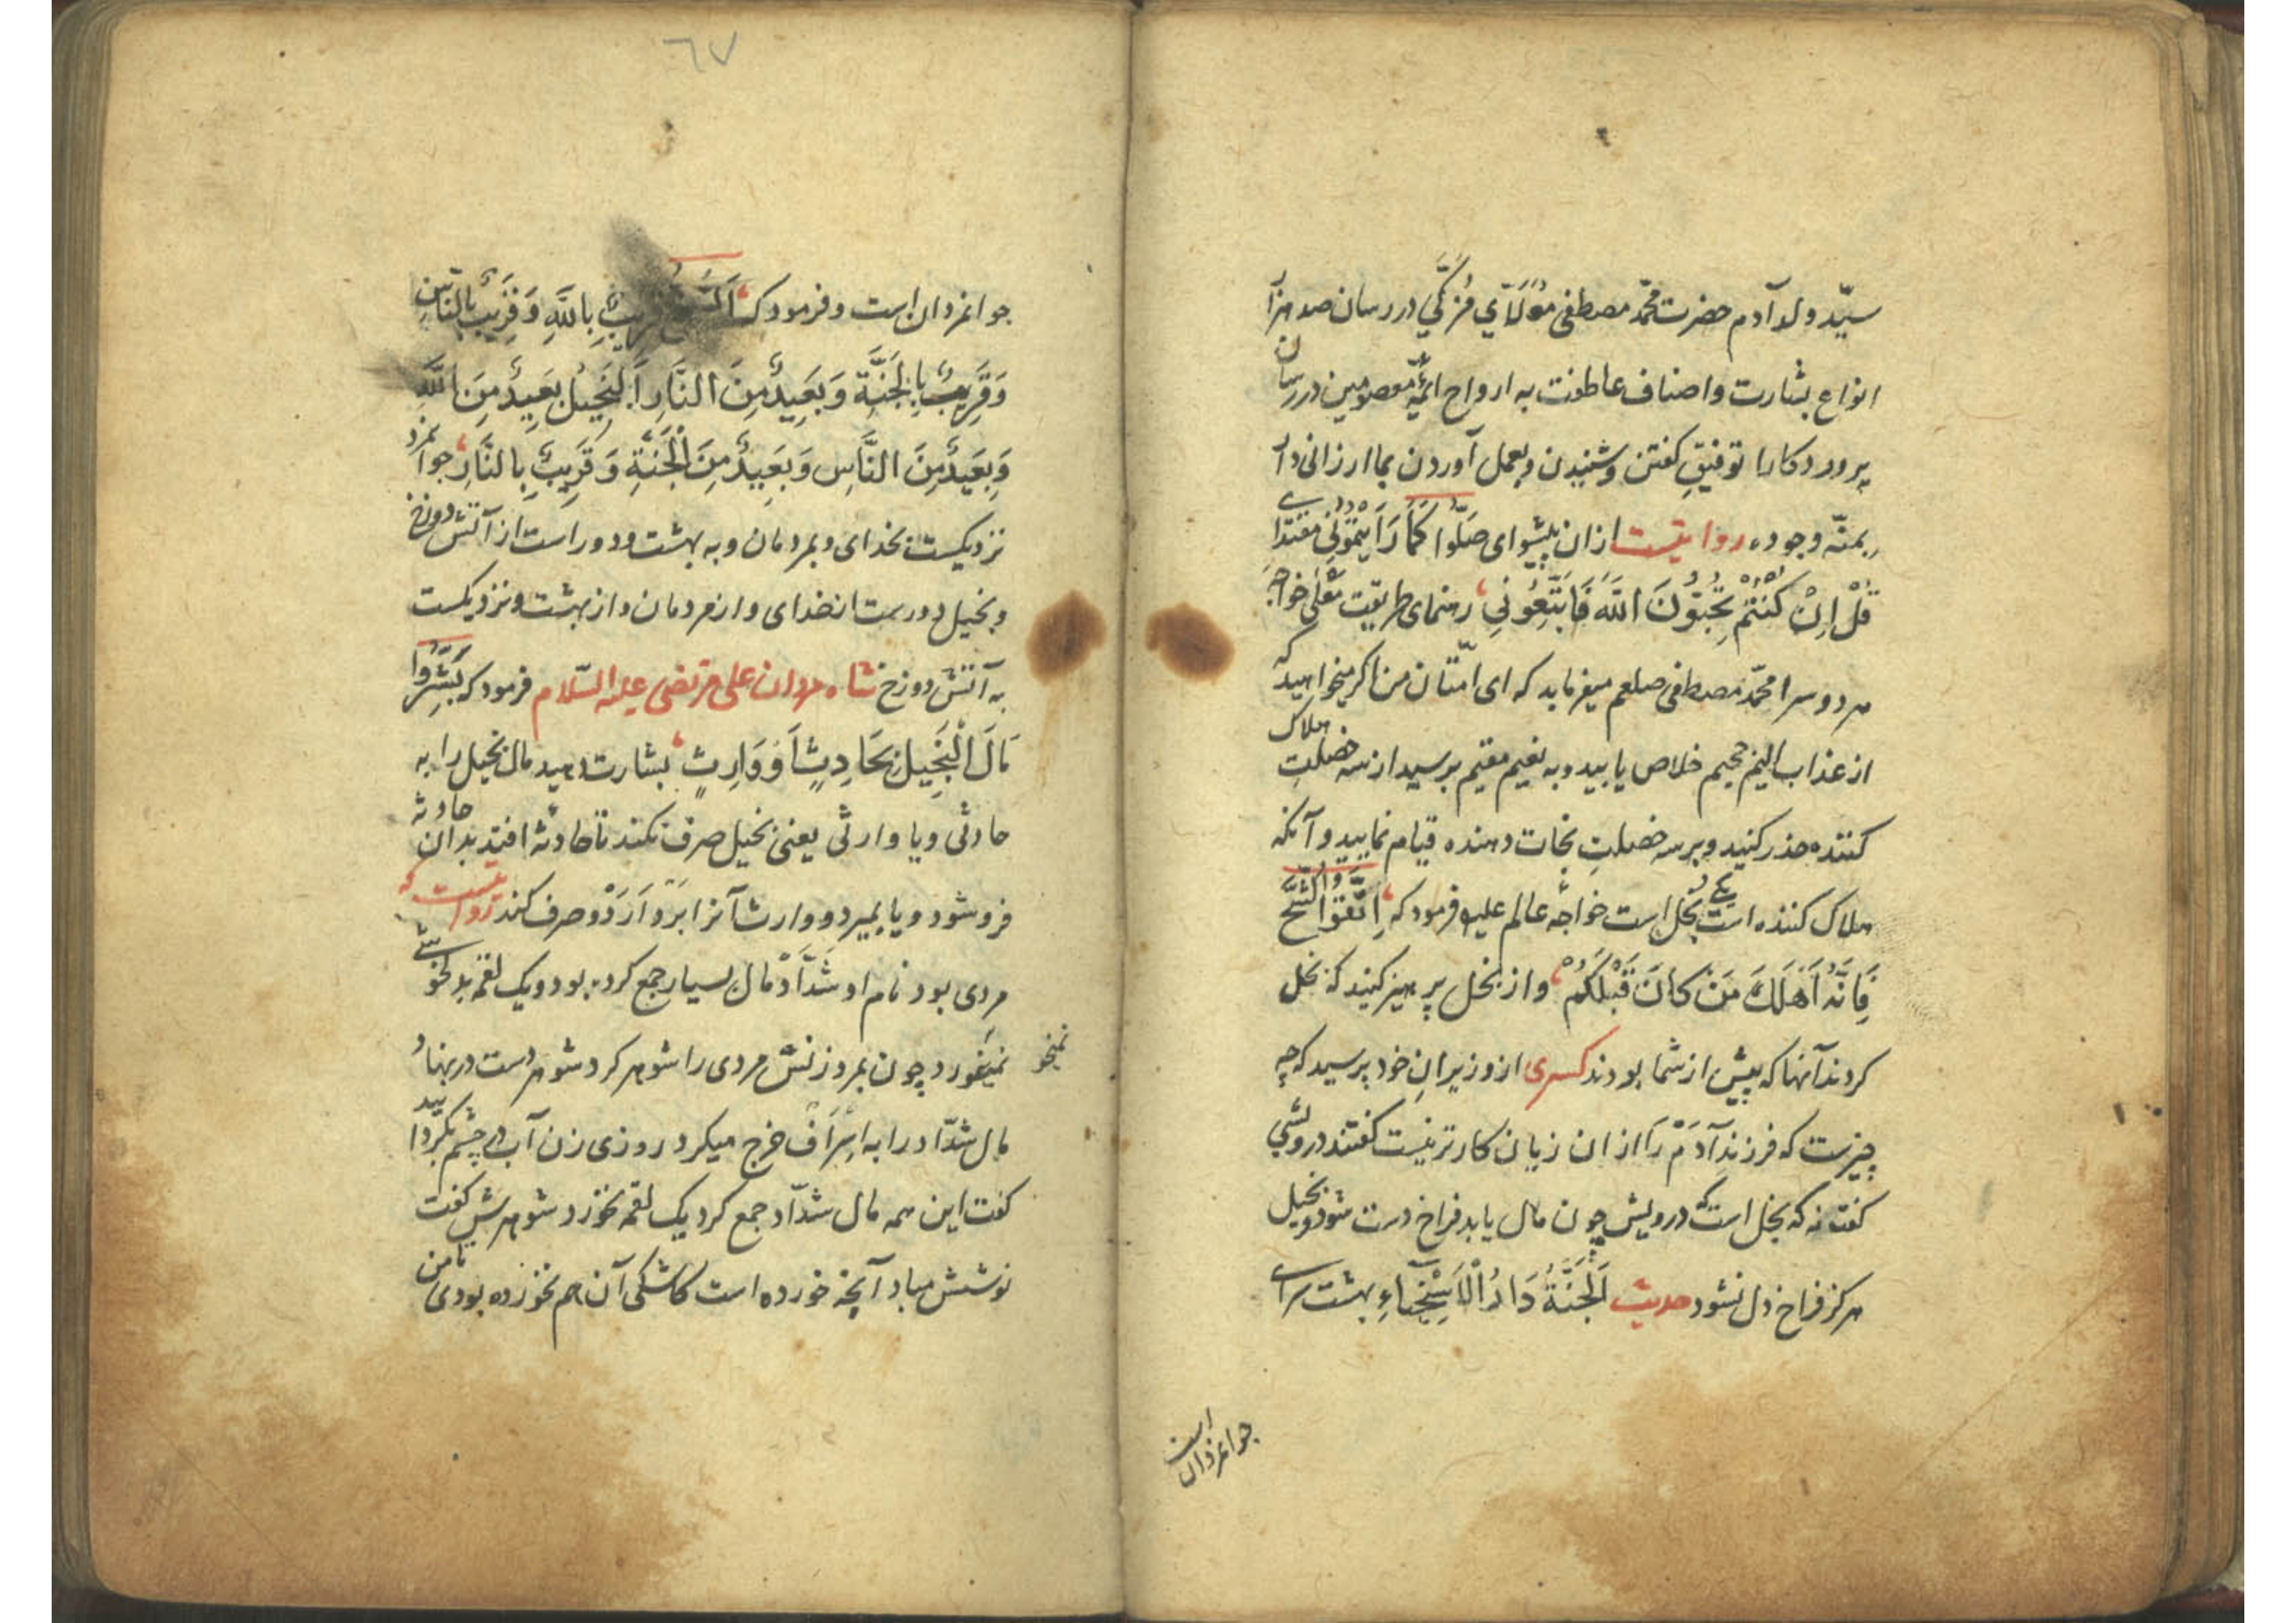 سیّد ولد آدم حضرت محمّد مصطفی مولای مزکی در رسان صد هزاران
انواع بشارت و اصناف عاطفت به ارواح ائمّهٔ معصومین در رسان
پروردکارا توفیقِ کفتن و شنیدن و بعمل آوردن بما ارزانی دار
بمنّه وجوده روایتست ازان پیشوای صَلُّوا کَمَا رَاَیْتُمُونِی مقتدای
قُلْ اِنْ کُنْتُمْ تُحِبُّونَ اللّٰهَ فَاتَّبِعُونِی رهنمای طریقت معلی خواجهٔ
هر دو سرا محمّد مصطفی صلعم میفرماید که ای امّتان من اکر میخواهید که
از عذاب الیم جحیم خلاص یابید و به نعیم مقیم برسید از سه خصلتِ هلاک
کننده حذر کنید و بر سه خصلتِ نجات دهنده قیام نمایید و آنکه
هلاک کننده است یکی بخل است خواجهٔ عالم علیه فرمود که اِتَّقُوا الشُّحَّ
فَاِنَّهُ اَهْلَكَ مَنْ كَانَ قَبْلَكُمْ و از بخل پرهیز کنید که بخل
کردند آنها که پیش از شما بودند کسری از وزیرانِ خود پرسید که چه
چیزست که فرزندِ آدَمْ رَا ازان زیان کارتر نیست کفتند درویشی
کفت نه که بخل است که درویش چون مال یابد فراخ دست شود و بخیل
هرکز فراخ دل نشود حدیث اَلْجَنَّةُ دَارُ الْاَسْخِیَاءِ بهشت سرای
جوانمردان است
جوانمردان است و فرمود که قَرِیبٌ بِاللّٰهِ وَ قَرِیبٌ بِالنَّاسِ
وَ قَرِیبٌ بِالْجَنَّةِ وَ بَعِیدٌ مِنَ النَّارِ اَلْبَخِیلُ بَعِیدٌ مِنَ اللّٰهِ
وَ بَعِیدٌ مِنَ النَّاسِ وَ بَعِیدٌ مِنَ الْجَنَّةِ وَ قَرِیبٌ بِالنَّارِ جوانمرد
نزدیکست بخدای و بمردمان و به بهشت و دور است از آتش دوزخ
و بخیل دورست از خدای و از مردمان و از بهشت و نزدیکست
به آتش دوزخ شاه مردان علی مرتضی علیه السّلام فرمود که بَشِّرُوا
مَالَ الْبَخِیلِ بِحَادِثٍ اَوْ وَارِثٍ بشارت دهید مال بخیل را به
حادثی و یا وارثی یعنی بخیل صرف نکند تا حادثهٔ افتد بدان حادثه
فرو شود و یا بمیرد و وارث آنرا بردارد و صرف کند روایتست که
مردی بود نام او شَدَّادْ مال بسیار جمع کرده بود و یک لقمه بدلخوشی
نمیخورد چون بمرد زنش مردی را شوهر کرد شوهر دست در نهاد
نمیخو
مال شدّاد را به اِسْرَافْ خرج میکرد روزی زن آب در چشم بکردانید
کفت این همه مال شدّاد جمع کرد یک لقمه نخورد شوهرش کفت
نوشش مباد آنچه خورده است کاشکی آن هم نخورده بودی تا من
٦٧